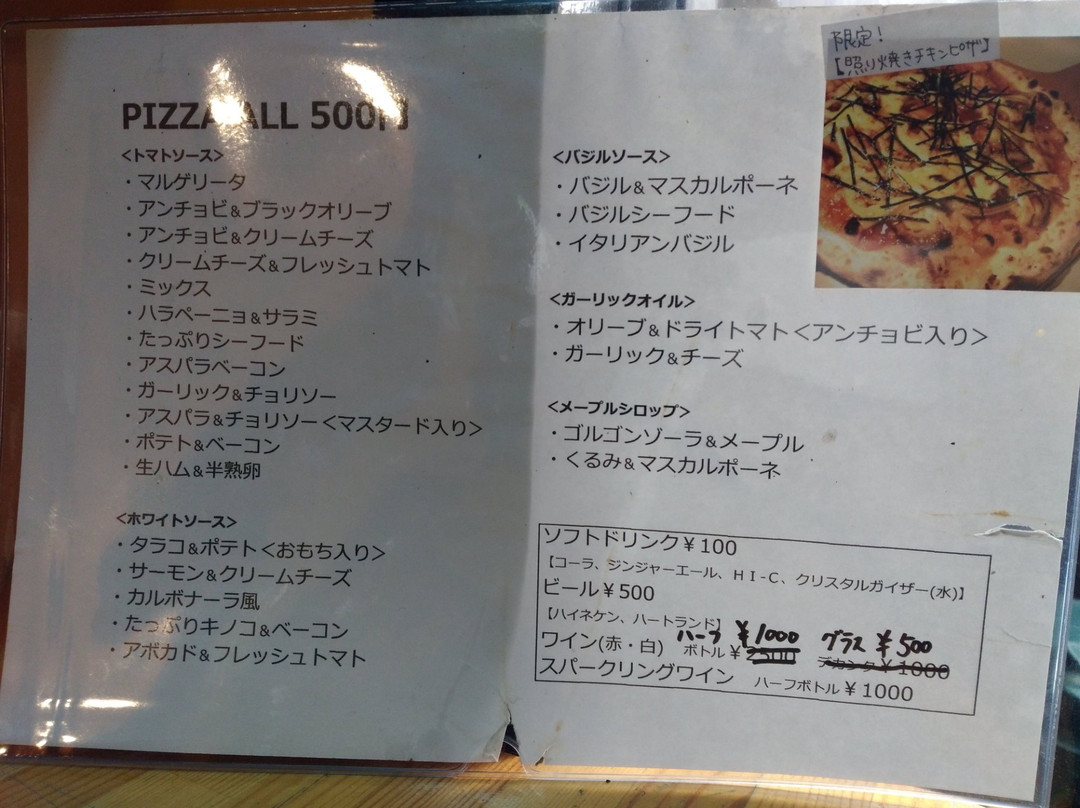 PIZZA ALL 500円
<トマトソース>
・マルゲリータ
・アンチョビ&ブラックオリーブ
・アンチョビ&クリームチーズ
・クリームチーズ&フレッシュトマト
・ミックス
・ハラペーニョ&サラミ
・たっぷりシーフード
・アスパラベーコン
・ガーリック&チョリソー
・アスパラ&チョリソー<マスタード入り>
・ポテト&ベーコン
・生ハム&半熟卵
<ホワイトソース>
・タラコ&ポテト<おもち入り>
・サーモン&クリームチーズ
・カルボナーラ風
・たっぷりキノコ&ベーコン
・アボカド&フレッシュトマト
限定!
【照り焼きチキンピザ】
<バジルソース>
・バジル&マスカルポーネ
・バジルシーフード
・イタリアンバジル
<ガーリックオイル>
・オリーブ&ドライトマト<アンチョビ入り>
・ガーリック&チーズ
<メープルシロップ>
・ゴルゴンゾーラ&メープル
・くるみ&マスカルポーネ
ソフトドリンク¥100
【コーラ、ジンジャーエール、HI-C、クリスタルガイザー(水)】
ビール¥500
【ハイネケン、ハートランド】
ハーフ ¥1000 グラス ¥500
ワイン(赤・白) ボトル¥2500 デカンタ¥1000
スパークリングワイン ハーフボトル¥1000